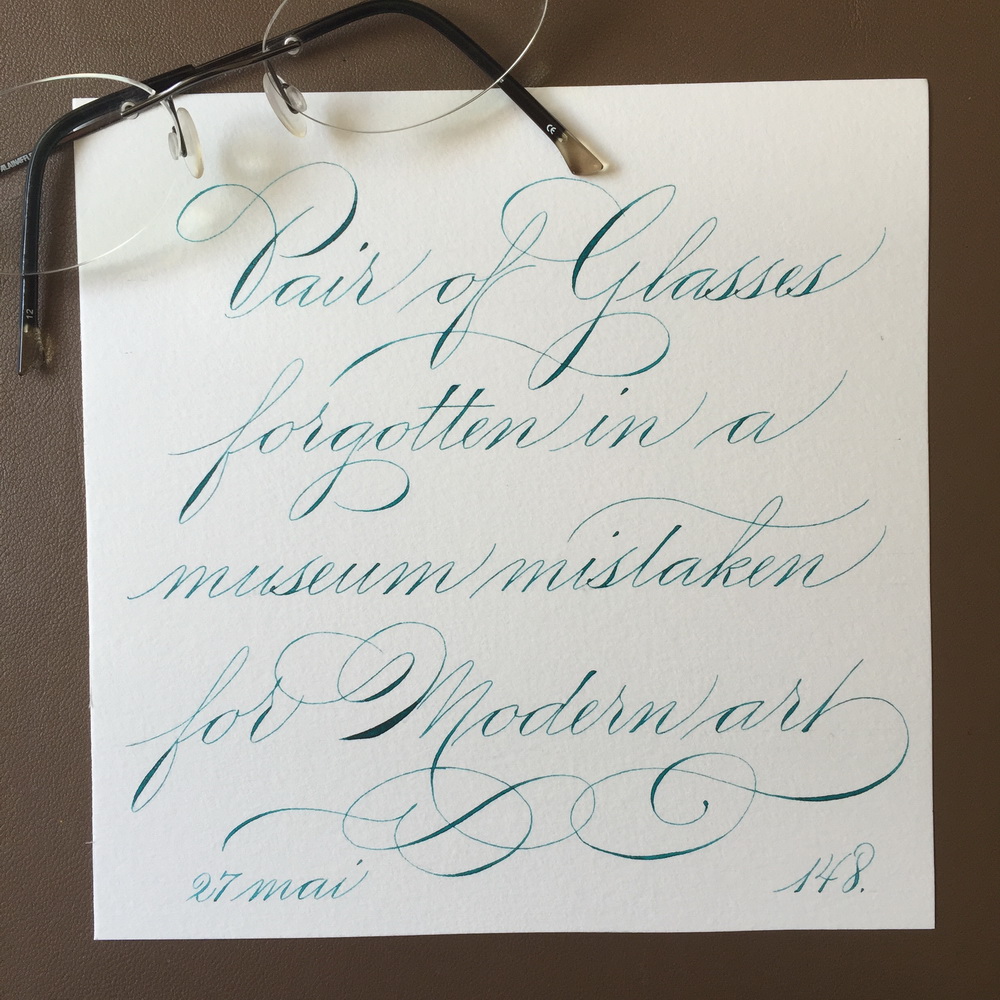 Pair of Glasses
forgotten in a
museum mistaken
for Modern art
27 mai 148.
CE
12